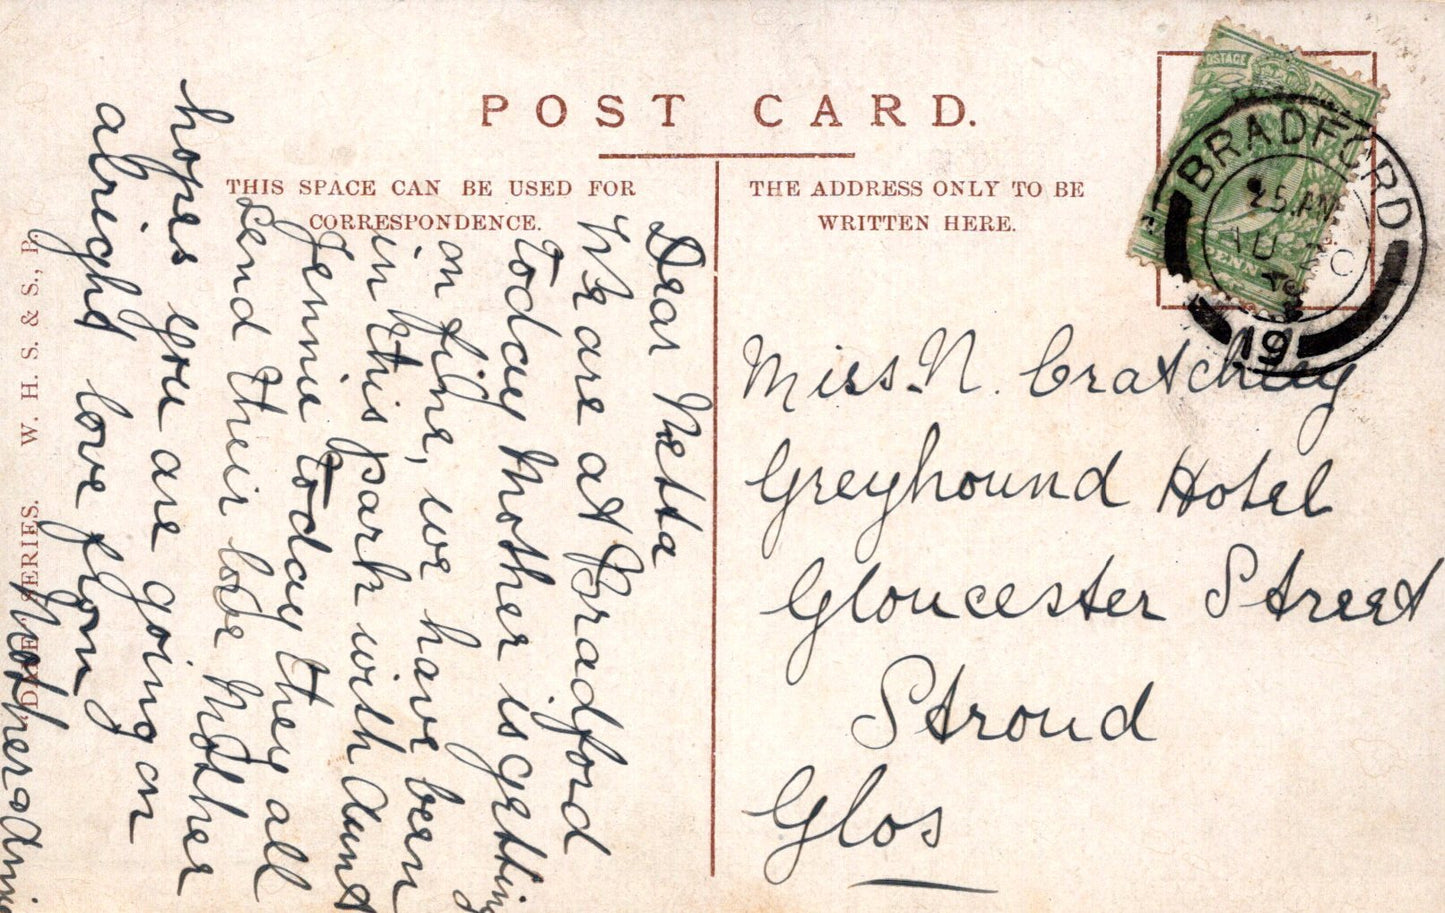 POST CARD.
THIS SPACE CAN BE USED FOR
CORRESPONDENCE.
THE ADDRESS ONLY TO BE
WRITTEN HERE.
POSTAGE
BRADFORD
19
Dear Netta
We are at Bradford
today Mother is getting
on fine, we have been
in this park with Aunt
Jennie today they all
send their love Mother
hopes you are going on
alright love from
Mother & Annie
Miss. N. Cratchley
Greyhound Hotel
Gloucester Street
Stroud
Glos
W. H. S. & S.,
SERIES.